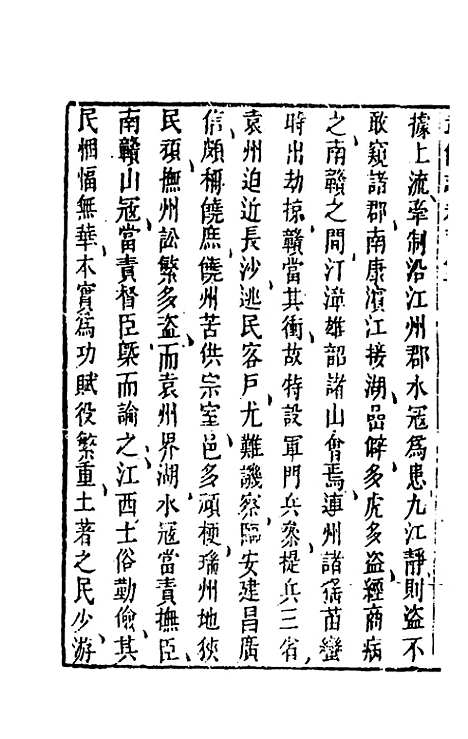 據上流牽制沿江州郡水冦爲患九江靜則盗不
敢窺諸郡南康濱江接湖嵒僻多虎多盗經商病
之南贛之間汀漳雄韶諸山會焉連州諸徭苗蠻
時出劫掠贛當其衝故特設軍門兵叅提兵三省
袁州迫近長沙逃民客戸尤難譏察臨安建昌廣
信頗稱饒庶饒州苦供宗室邑多頑梗瑞州地狹
民頑撫州訟繁多盗而袁州界湖水冦當責撫臣
南贛山冦當責督臣槩而論之江西士俗勤儉其
民悃愊無華本實爲功賦役繁重土著之民少游